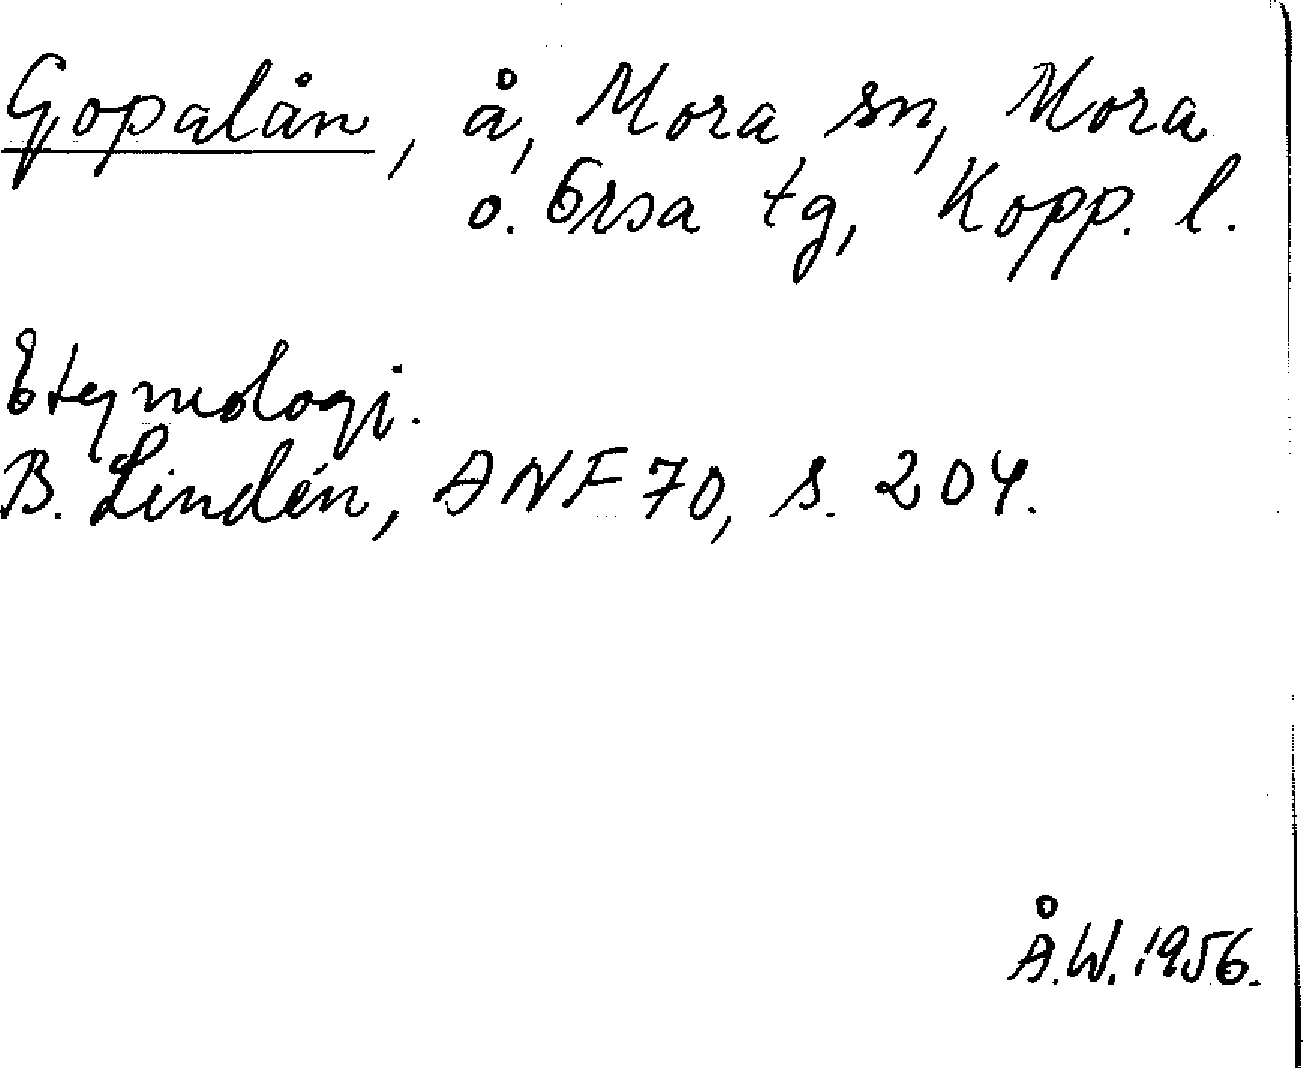 Gopalån, å, Mora sn, Mora
o. Orsa tg, Kopp. l.
Etymologi.
B. Lindén, ANF 70, s. 204.
Å.W. 1956.